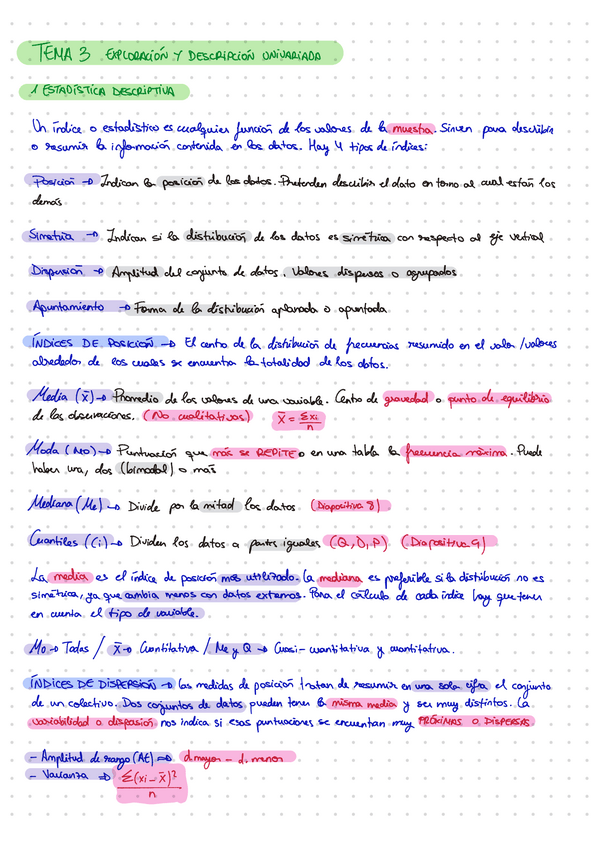 TEMA 3 EXPLORACIÓN Y DESCRIPCIÓN UNIVARIADA
1 ESTADÍSTICA DESCRIPTIVA
Un índice o estadístico es cualquier función de los valores de la muestra. Sirven para describir
o resumir la información contenida en los datos. Hay 4 tipos de índices:
Posición → Indican la posición de los datos. Pretenden describir el dato en torno al cual están los
demás
Simetría → Indican si la distribución de los datos es simétrica con respecto al eje vertical
Dispersión → Amplitud del conjunto de datos. Valores dispersos o agrupados
Apuntamiento → Forma de la distribución aplanada o apuntada
ÍNDICES DE POSICIÓN → El centro de la distribución de frecuencias resumido en el valor/valores
alrededor de los cuales se encuentra la totalidad de los datos.
Media (x̄) → Promedio de los valores de una variable. Centro de gravedad o punto de equilibrio
de las observaciones. (No cualitativos) x̄ = Σxi/n
Moda (Mo) → Puntuación que más se REPITE o en una tabla la frecuencia máxima. Puede
haber una, dos (bimodal) o más
Mediana (Me) → Divide por la mitad los datos (Diapositiva 8)
Cuantiles (Ci) → Dividen los datos a partes iguales (Q, D, P) (Diapositiva 9)
La media es el índice de posición más utilizado. La mediana es preferible si la distribución no es
simétrica, ya que cambia menos con datos extremos. Para el cálculo de cada índice hay que tener
en cuenta el tipo de variable.
Mo → Todas / x̄ → Cuantitativa / Me y Q → Cuasi-cuantitativa y cuantitativa.
ÍNDICES DE DISPERSIÓN → Las medidas de posición tratan de resumir en una sola cifra el conjunto
de un colectivo. Dos conjuntos de datos pueden tener la misma media y ser muy distintos. La
variabilidad o dispersión nos indica si esas puntuaciones se encuentran muy PRÓXIMAS O DISPERSAS
- Amplitud de rango (At) ⇒ d.mayor - d.menor
- Varianza ⇒ Σ(xi - x̄)²/n